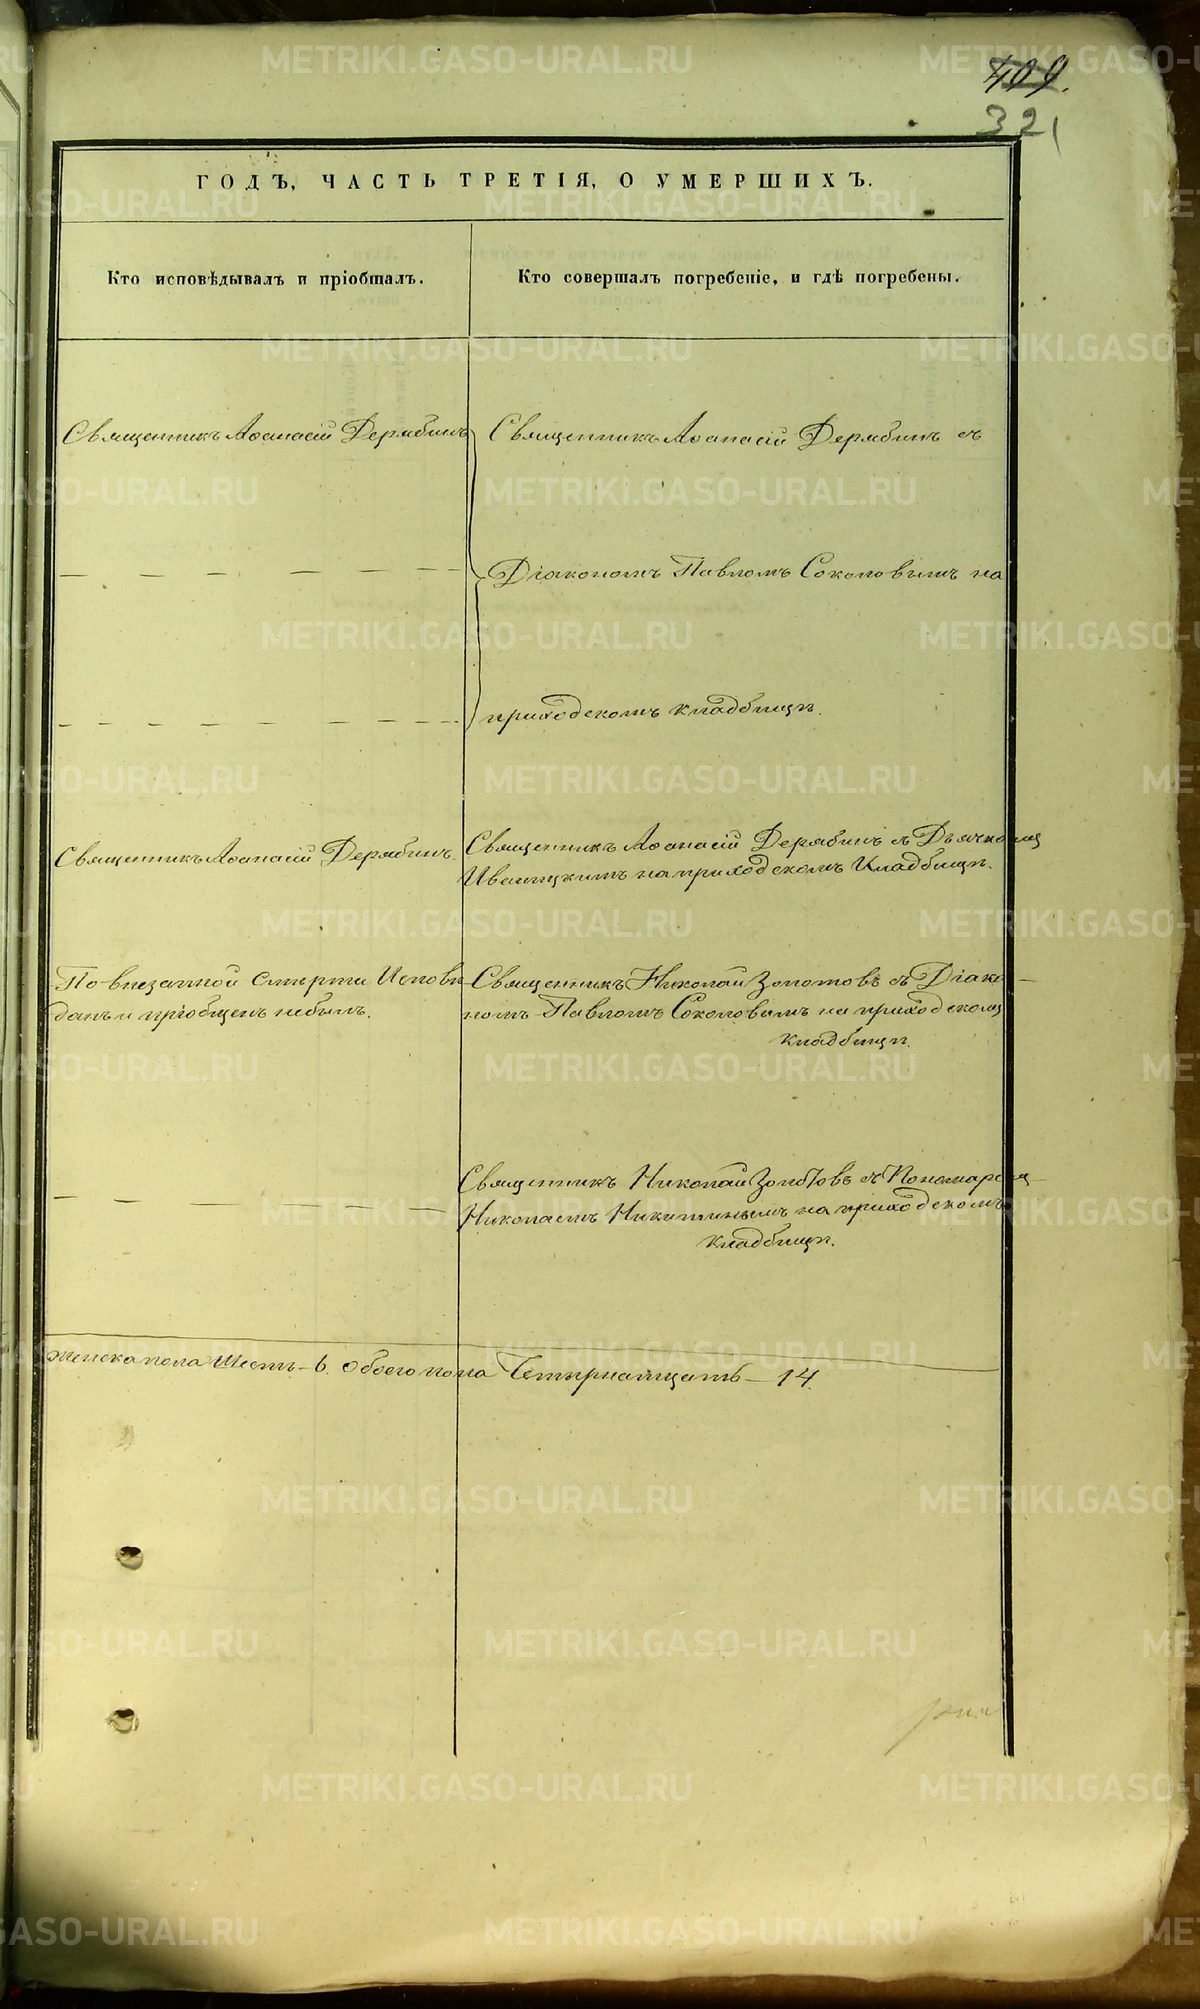 409.
321
ГОДЪ, ЧАСТЬ ТРЕТІЯ, О УМЕРШИХЪ.
Кто исповѣдывалъ и пріобщалъ.
Кто совершалъ погребеніе, и гдѣ погребены.
Священникъ Аѳанасій Дерябинъ
Священникъ Аѳанасій Дерябинъ съ
Діакономъ Павломъ Соколовымъ на
приходскомъ кладбищѣ.
Священникъ Аѳанасій Дерябинъ.
Священникъ Аѳанасій Дерябинъ съ Дьячкомъ
на приходскомъ Кладбищѣ.
По внезапной смерти Исповѣ
данъ и пріобщенъ небылъ.
Священникъ Николай Золотовъ съ Діако-
номъ Павломъ Соколовымъ на приходскомъ
кладбищѣ.
Священникъ Николай Золотовъ съ Пономаремъ
Николаемъ Никитинымъ на приходскомъ
кладбищѣ.
женска пола Шесть - 6. Обоего пола Четырнатцать - 14.
METRIKI.GASO-URAL.RU